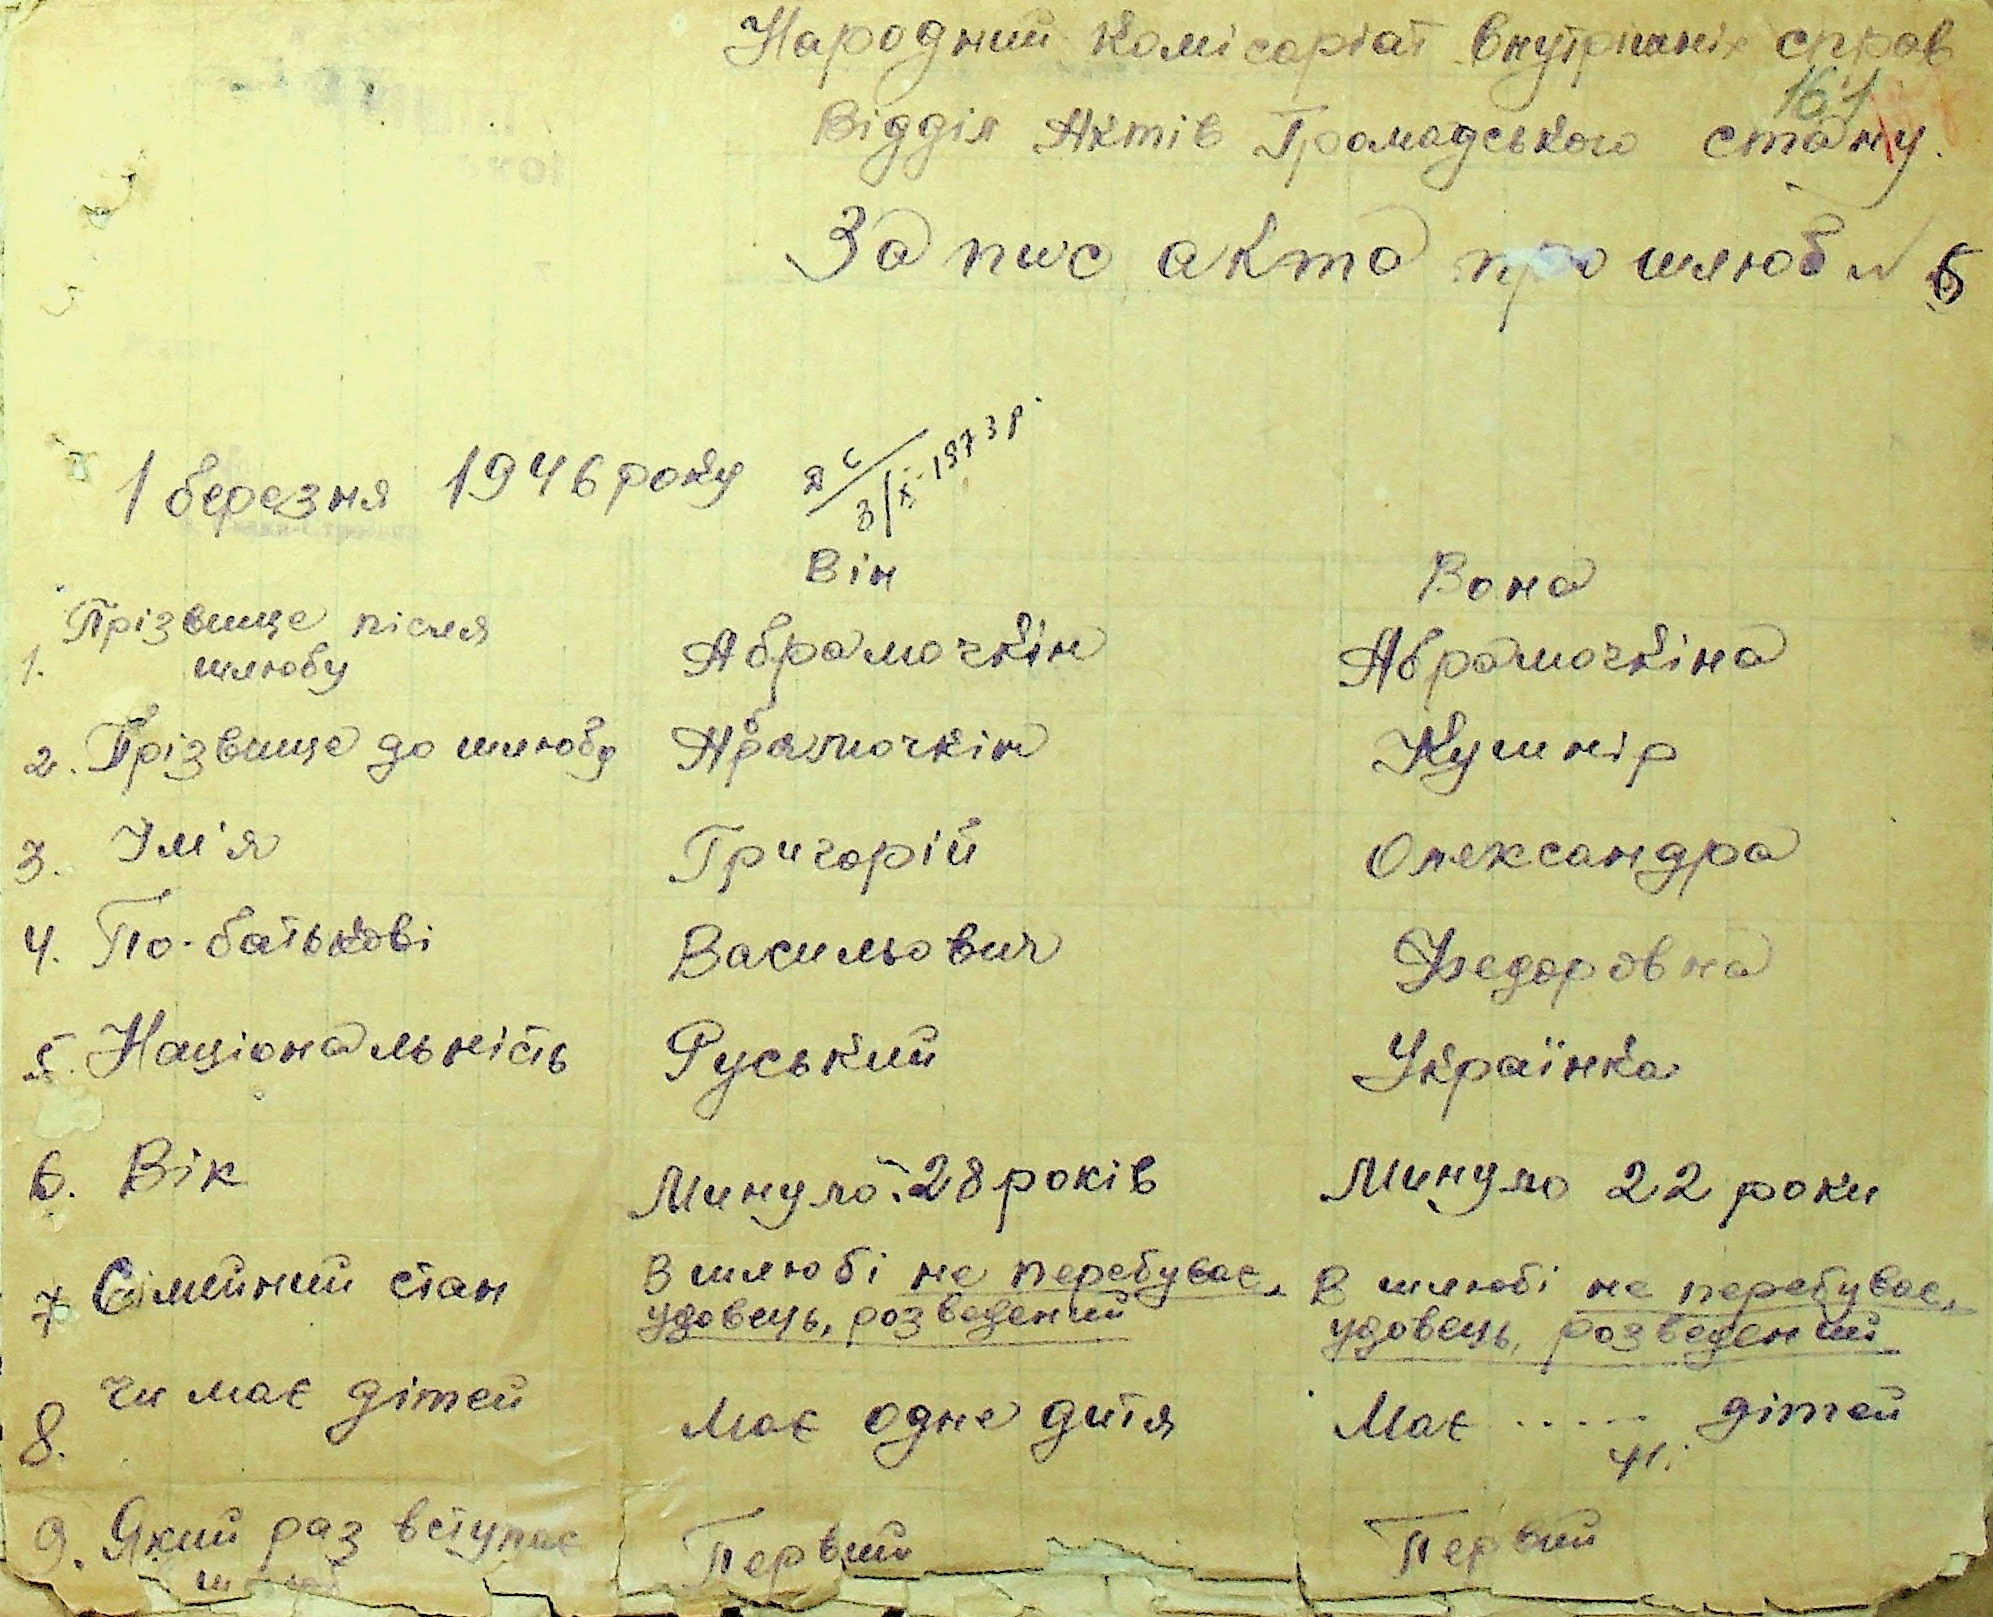 Народний комісаріат внутрішніх справ
161
Відділ Актів Громадського стану.
Запис акта про шлюб № 6
1 березня 1946 року
3/X-1973 р.
Він Вона
1. Прізвище після шлюбу Абрамочкін Абрамочкіна
2. Прізвище до шлюбу Абрамочкін Кушнір
3. Ім'я Григорій Олександра
4. По-батькові Васильович Федоровна
5. Національність Руський Українка
6. Вік Минуло 28 років Минуло 22 роки
7 Сімейний стан В шлюбі не перебуває, удовець, розведений В шлюбі не перебуває, удовець, розведений
8. Чи має дітей Має одне дитя Має ..... дітей
9. Який раз вступає Первий Первий